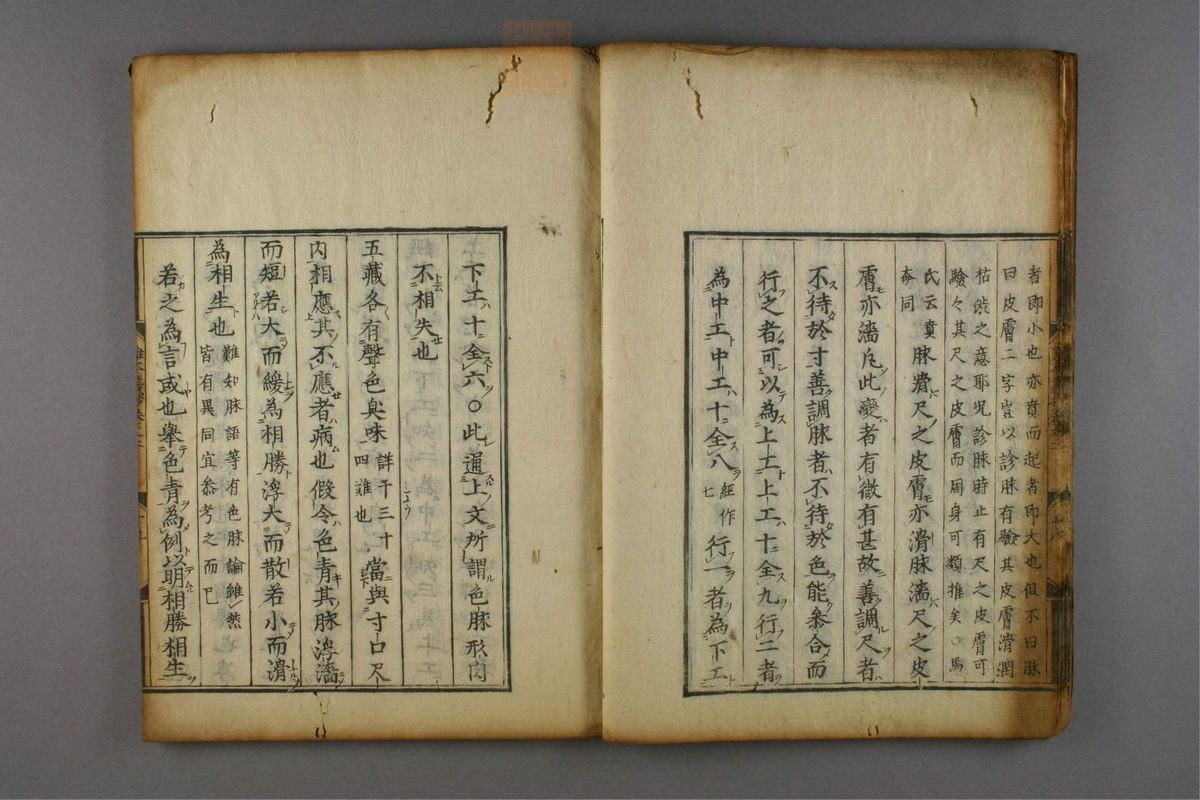 者即小也亦賁而起者即大也但不曰脉
曰皮膚二字豈以診脉有驗其皮膚滑潤
枯澁之意耶況診脉時止有尺之皮膚可
驗々其尺之皮膚而周身可類推矣○馬
氏云賁
奔同
脉滑尺之皮膚亦滑脉濇尺之皮
膚亦濇凡此變者有微有甚故善調尺者
不待於寸善調脉者不待於色能參合而
行之者可以為上工上工十全九行二者
為中工中工十全八
經作
七
行一者為下工
下工十全六○此通上文所謂色脉形肉
不相失也
五藏各有聲色臭味
詳于三十
四難也
當與寸口尺
内相應其不應者病也假令色青其脉浮濇
而短若大而緩為相勝浮大而散若小而滑
為相生也
難知脉語等有色脉論雖然
皆有異同宜參考之而已
若之為言或也舉色青為例以明相勝相生